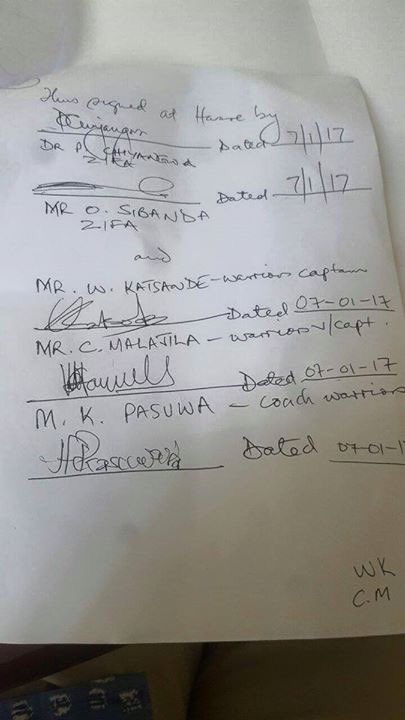 Thus signed at Harare by
Dated 7/1/17
DR P. CHIYANGWA
ZIFA
Dated 7/1/17
MR O. SIBANDA
ZIFA
and
MR. W. KATSANDE - warriors captain
Dated 07-01-17
MR. C. MALAJILA - warriors v/capt.
Dated 07-01-17
M. K. PASUWA - coach warriors
Dated 07-01-1
WK
C.M